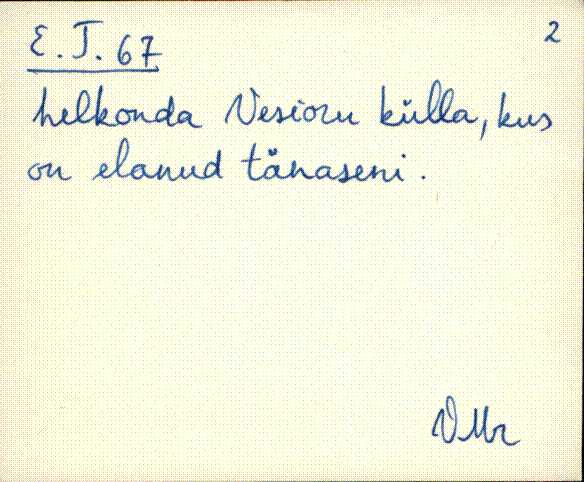 E. J. 67
2
helkonda Vesioru külla, kus
on elanud tänaseni.
VMr